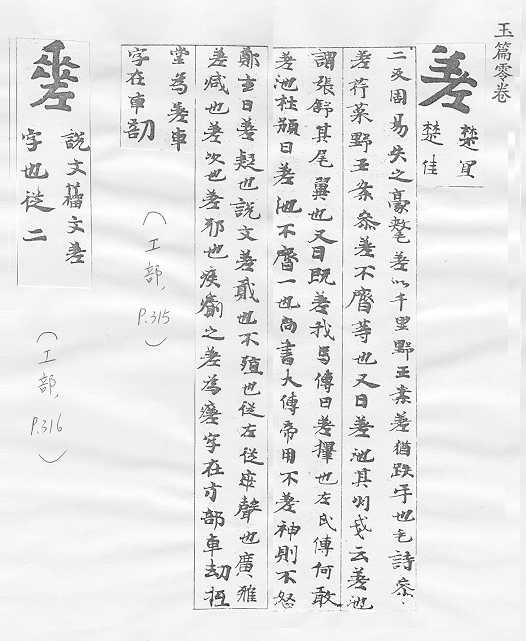 玉篇零卷
差
楚宜
楚佳
二反周易失之豪氂差以千里野王案差猶跌乎也毛詩叅
差荇菜野王案叅差不齊等也又曰差池其羽戔云差池
謂張舒其尾翼也又曰既差我馬傳曰差擇也左氏傳何敢
差池杜預曰差池不齊一也尚書大傳帝用不差神則不怒
鄭玄曰差疑也說文差貳也不殖也從左從𠂹聲也廣雅
差減也差次也差邪也疾瘉之差為瘥字在疒部車
堂為差車
字在車部
(工部,
P.315)
說文籀文差
字也從二
(工部,
P.316)